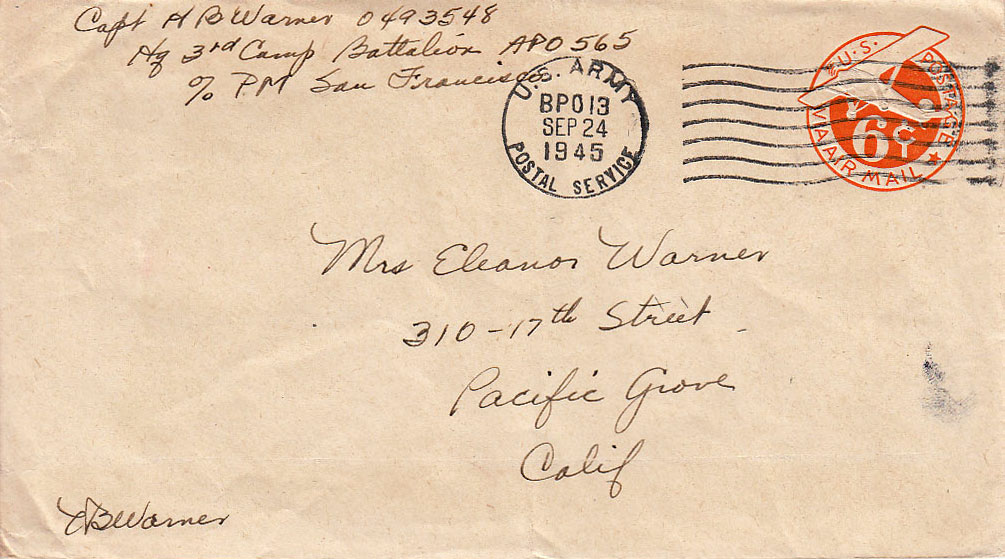 Capt H B Warner 0493548
Hq 3rd Camp Battalion APO 565
c/o PM San Francisco
U.S. ARMY
BPO 13
SEP 24
1945
POSTAL SERVICE
U.S. POSTAGE
6¢
VIA AIR MAIL
Mrs Eleanor Warner
310-17th Street
Pacific Grove
Calif
HBWarner